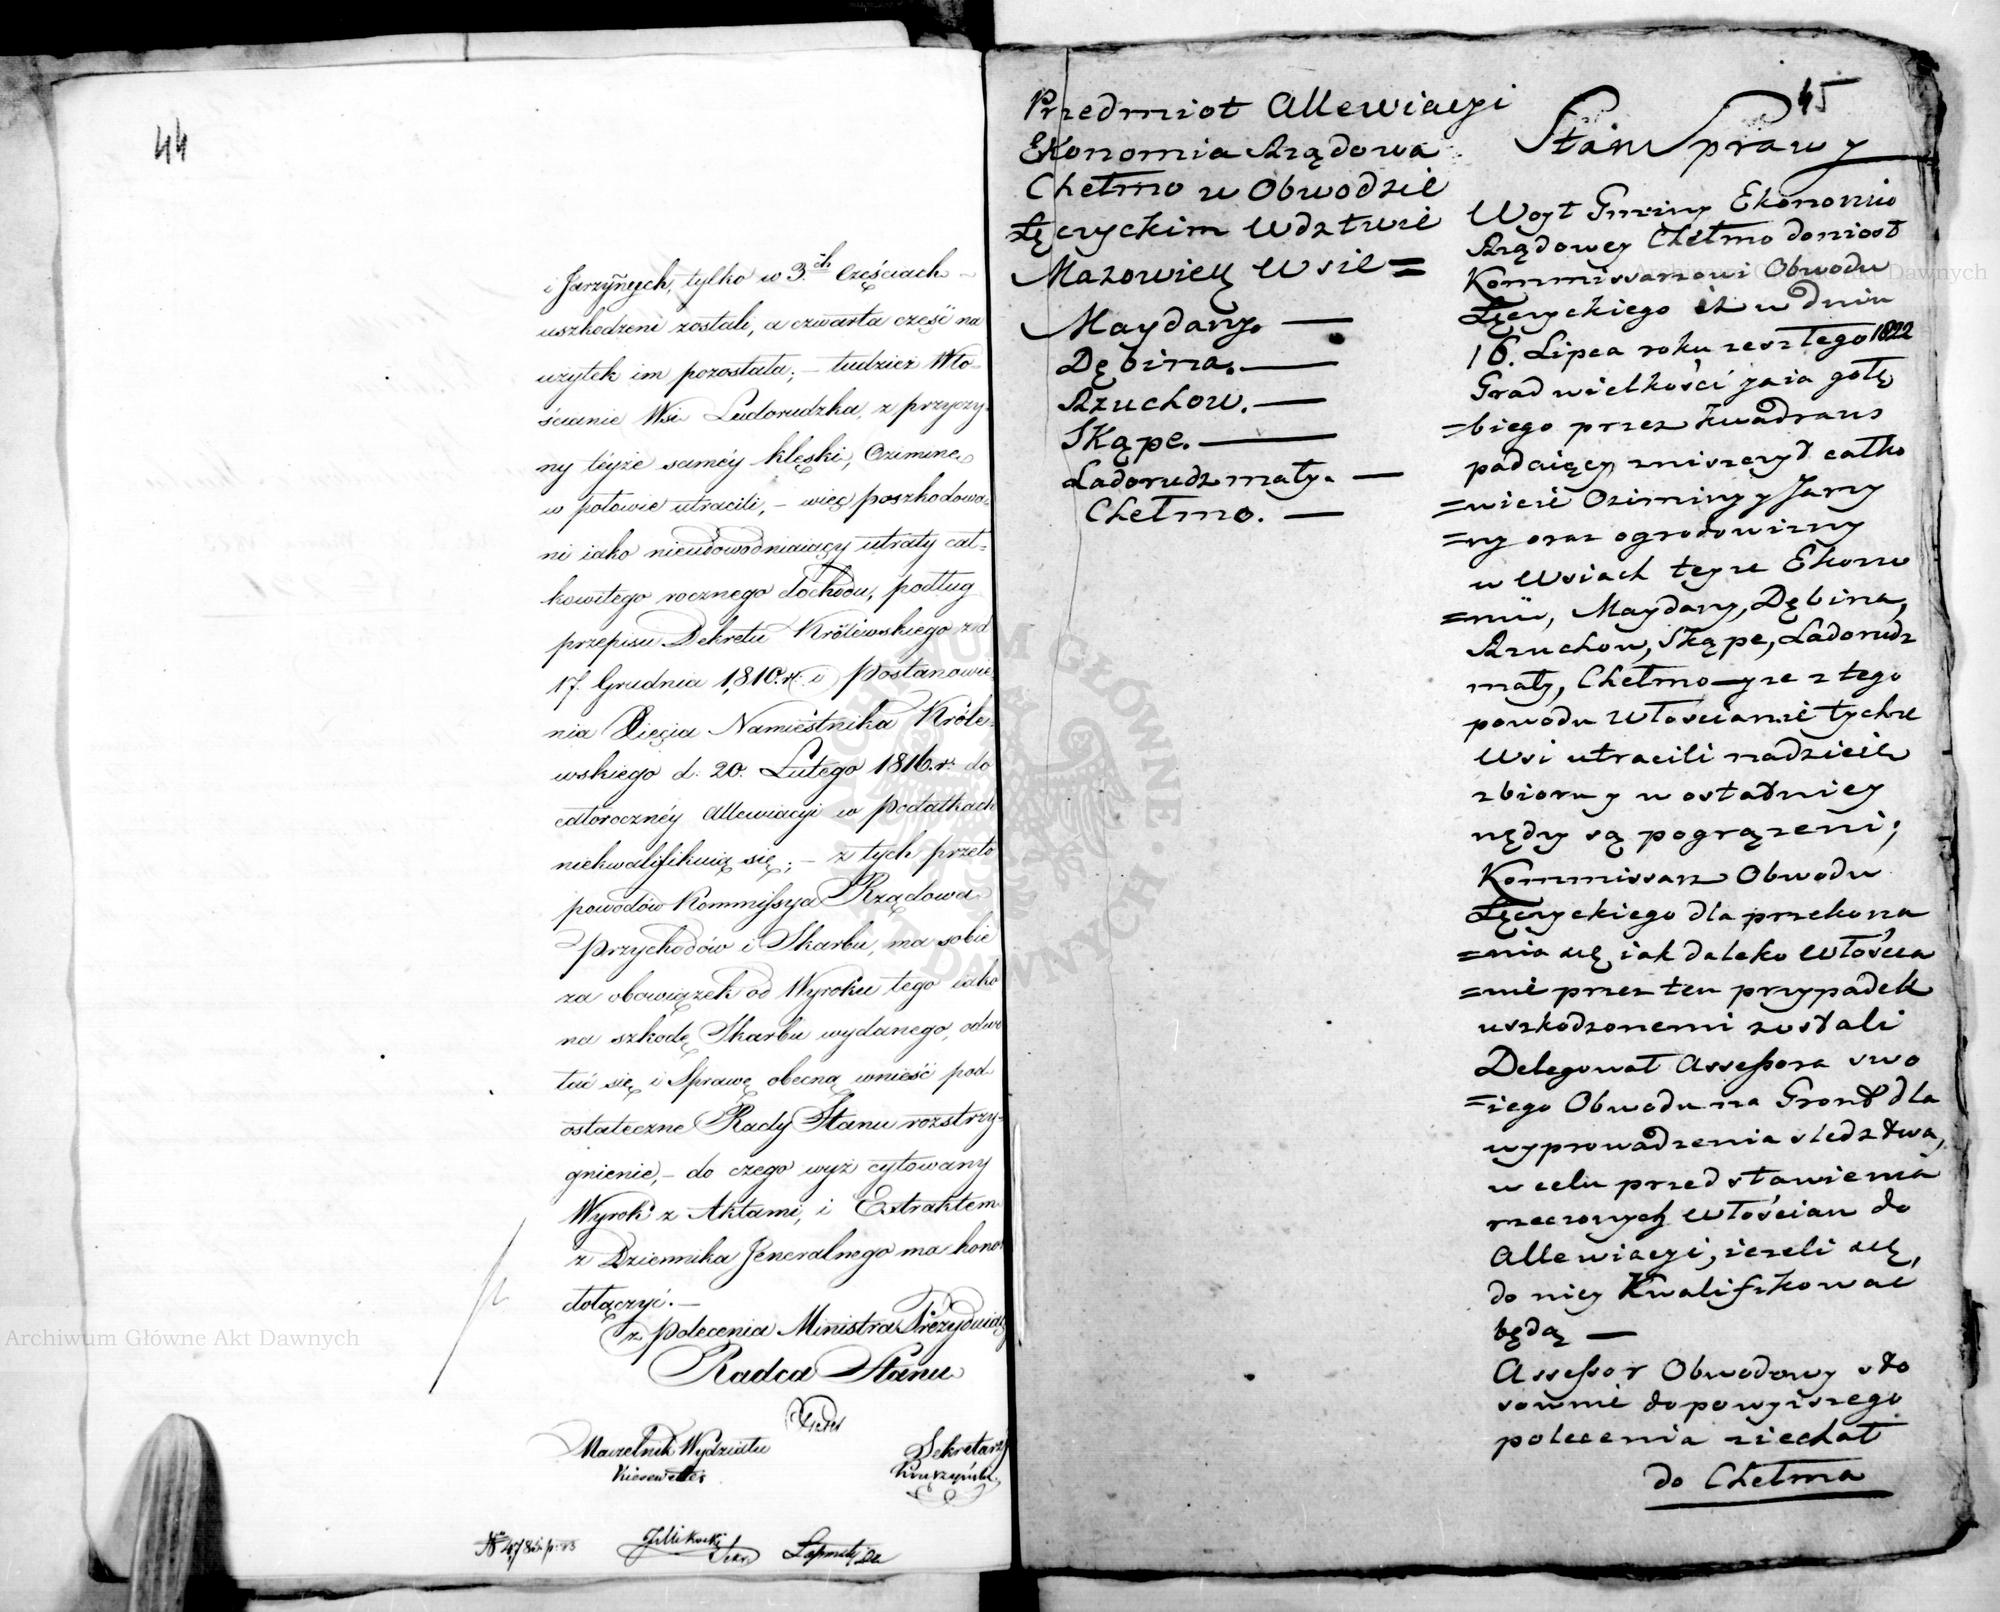 44
i Jarzÿnych, tylko w 3.ch Częściach –
uszkodzeni zostali, a czwarta część na
użytek im pozostała; – tudzież Wło-
ścianie Wsi Ladorudzka, z przyczy-
ny téyże saméy klęski, Oziminę
w połowie utracili, – więc poszkodowa-
ni iako nieudowodniaiący utraty cał-
kowitego rocznego dochodu, podług
przepisu Dekretu Królewskiego z d
17. Grudnia 1,810. r. i Postanowie-
nia Xięcia Namiestnika Króle-
wskiego d. 20. Lutego 1816. r. do
całorocznéy Allewiacyi w podatkach
niekwalifikuią się; – z tych przeto
powodów Kommissya Rządowa
Przychodów i Skarbu, ma sobie
za obowiązek od Wyroku tego iako
na szkodę Skarbu wydanego, odwo
łać się, i Sprawę obecną wnieść pod
ostateczne Rady Stanu rozstrzy-
gnienie, – do czego wyż cytowany
Wyrok z Aktami, i Extraktem
z Dziennika Jeneralnego ma honor
dołączyć. –
z polecenia Ministra Prezyduiąc
Radca Stanu
Naczelnik Wydziału
Sekretarz
45
Przedmiot Allewiacyi
Ekonomia Rządowa
Chełmo w Obwodzie
Łęczyckim Wdztwie
Mazowieц Wsie =
Maydany. —
Dębina. —
Rzuchow. —
Skąpe. —
Ladorudz mały. —
Chełmo. —
Stan Sprawy
Woyt Gminy Ekonomio
Rządowey Chełmo doniosł
Kommissarzowi Obwodu
Łęczyckiego iż w dniu
16. Lipca roku zeszłego 1822
Grad wielkości jaia gołę
=biego przez kwadrans
padaiący zniszczył całko
=wicie Oziminy y Jarzy
=ny oraz ogrodowizny
w Wsiach teyże Ekono
=mii, Maydany, Dębina,
Rzuchow, Skąpe, Ladorudz
mały, Chełmo – y że z tego
powodu Włościanie tychże
Wsi utracili nadzieie
zbioru y w ostatniey
nędzy są pogrązeni;
Kommissarz Obwodu
Łęczyckiego dla przekona
=nia się iak daleko Włościa
=nie przez ten przypadek
uszkodzonemi zostali
Delegował Assessora swo
=iego Obwodu na Gront dla
wyprowadzenia sledztwa,
w celu przedstawienia
rzeczonych Włościan do
Allewiacyi, iezeli się,
do niey Kwalifikować
będą —
Assessor Obwodowy sto
sownie do powyiszego
polecenia ziechał
do Chełma
Archiwum Główne Akt Dawnych
Archiwum Główne Akt Dawnych
ARCHIWUM GŁÓWNE AKT DAWNYCH